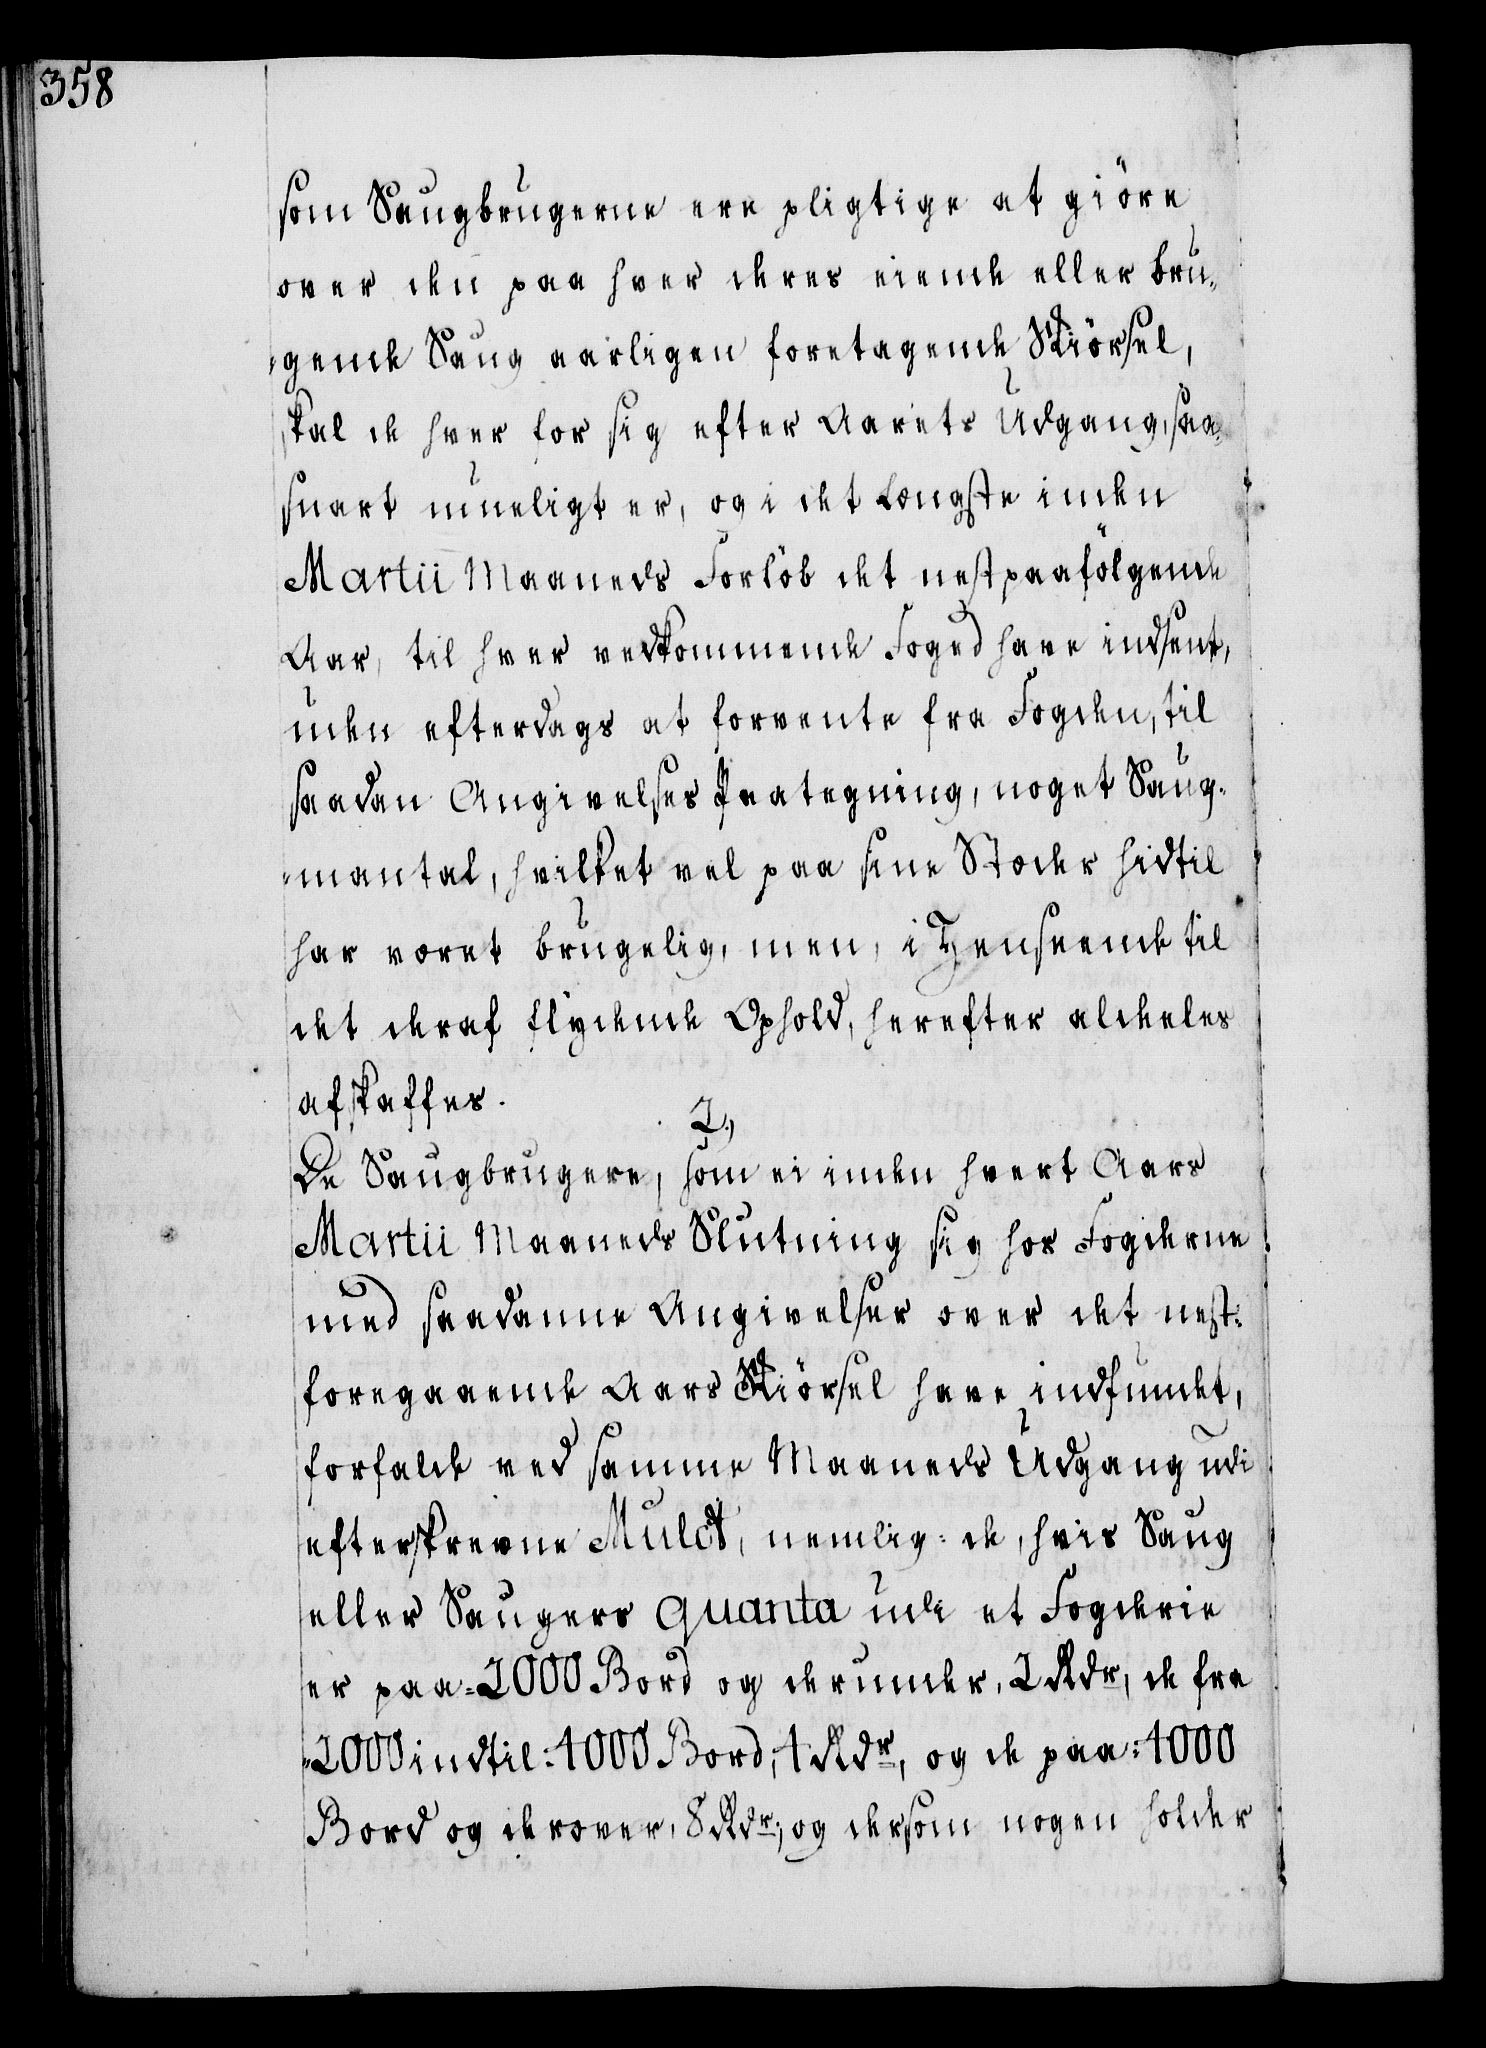 358
som Saugbrugerne ere pligtige at giöre
over den paa hver deres eiende eller bru-
-gende Saug aarligen foretagende Skiörsel,
skal de hver for sig efter Aarets Udgang, saa-
snart mueligt er, og i det Længste inden
Martii Maaneds Forlöb det nestpaafölgende
Aar, til hver vedkommende Foged have indsent,
uden efterdags at forvente fra Fogden, til
saadan Angivelses Paategning, noget Saug-
-mantal, hvilket vel paa sine Stæder hidtil
har været brugelig, men, i Henseende til
det deraf flydende Ophold, herefter aldeles
afskaffes.
2,
De Saugbrugere, som ei inden hvert Aars
Martii Maaneds Slutning sig hos Fogderne
med saadanne Angivelser over det nest-
foregaaende Aars Skiörsel have indfundet,
forfalde ved samme Maaneds Udgang udi
efterskrevne Mulct, nemlig: de, hvis Saug
eller Saugers Quanta udi et Fogderie
er paa=2000 Bord og derunder, 2 Rdr, de fra
-2000 indtil: 4000 Bord, 4 Rdr, og de paa: 4000
Bord og derover, 8 Rdr; og dersom nogen holder